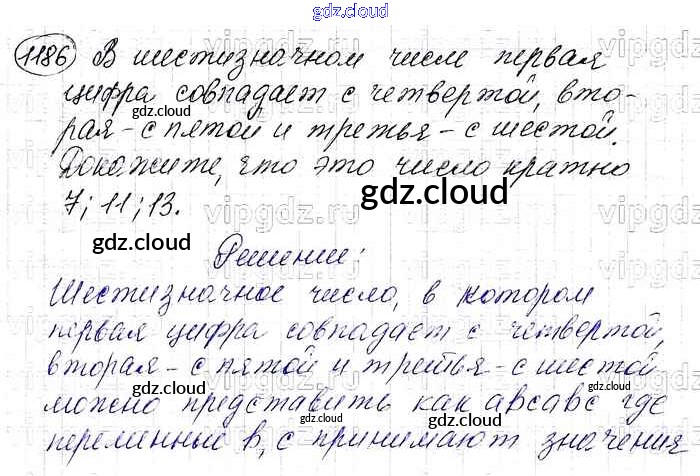 gdz.cloud
1186 В шестизначном числе первая
цифра совпадает с четвертой, вто-
рая - с пятой и третья - с шестой.
Докажите, что это число кратно
7; 11; 13.
Решение:
Шестизначное число, в котором
первая цифра совпадает с четвертой,
вторая - с пятой и третья - с шестой
можно представить как авсавс где
переменные в, с принимают значения
gdz.cloud
gdz.cloud
gdz.cloud
gdz.cloud
gdz.cloud
gdz.cloud
gdz.cloud
gdz.cloud